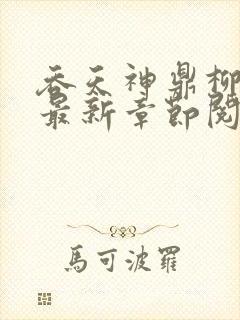 吞天神鼎柳
最新章節閱
馬可波羅